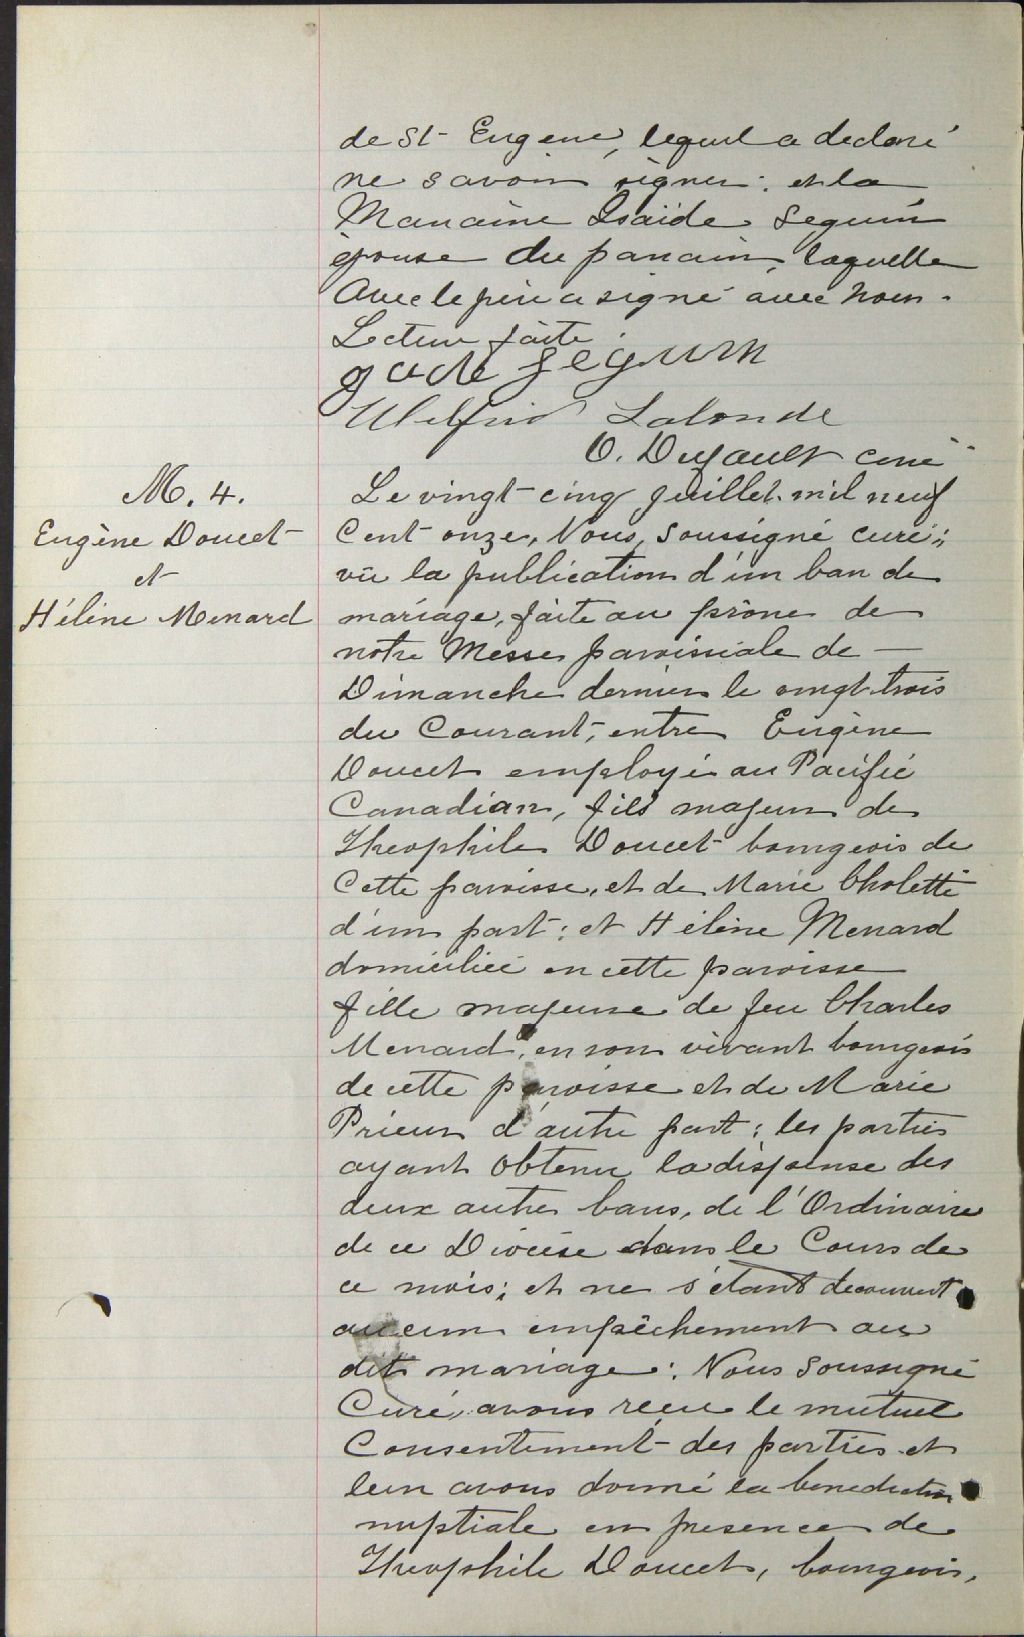 de St Eugene, lequel a declaré
ne savoir signer: et la
Marraine Isaïde Seguin
épouse du parrain, laquelle
Avec le père a signé avec nous.
Lecture faite
Seguin
Wilfrid Lalonde
O. Dufault curé
M. 4.
Eugène Doucet
et
Hélène Menard
Le vingt-cinq juillet mil neuf
Cent onze, Nous, soussigné curé;
vu la publication d'un ban de
mariage, faite au prône de
notre Messe paroissiale de —
Dimanche dernier le vingt-trois
du Courant, entre Eugène
Doucet employé au Pacific
Canadian, fils majeur de
Theophile Doucet bourgeois de
Cette paroisse, et de Marie Cholette
d'une part: et Hélène Menard
domiciliée en cette paroisse
fille majeure de feu Charles
Menard, en son vivant bourgeois
de cette paroisse et de Marie
Prieur d'autre part; les parties
ayant Obtenu la dispense des
deux autres bans, de l'Ordinaire
de ce Diocèse dans le Cours de
ce mois; et ne s'étant decouvert
aucun empêchement au
dit mariage: Nous Soussigné
Curé, avons reçu le mutuel
Consentement des parties et
leur avons donné la benediction
nuptiale en presence de
Theophile Doucet, bourgeois,